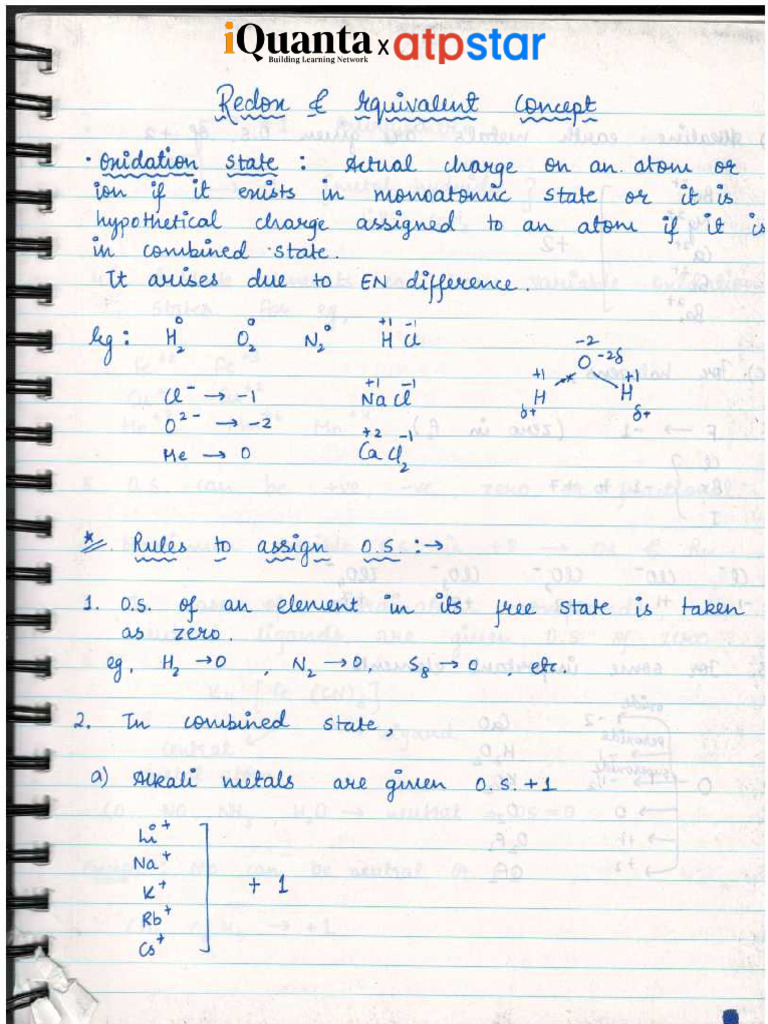 iQuanta x atpstar
Building Learning Network
Redox & Equivalent Concept
• Oxidation state : Actual charge on an atom or
ion if it exists in monoatomic state or it is
hypothetical charge assigned to an atom if it is
in combined state.
It arises due to EN difference.
Eg : H₂⁰ O₂⁰ N₂⁰ H⁺¹ Cl⁻¹
Cl⁻ → -1 Na⁺¹ Cl⁻¹
O²⁻ → -2 Ca⁺² Cl₂⁻¹
Me → 0
-2
O -2δ
+1 +1
H H
δ+ δ+
* Rules to assign O.S :→
1. O.S. of an element in its free state is taken
as zero.
eg, H₂ → 0 , N₂ → 0, S₈ → 0 , etc.
2. In combined state,
a) Alkali metals are given O.S. +1
Li⁺
Na⁺
K⁺ + 1
Rb⁺
Cs⁺